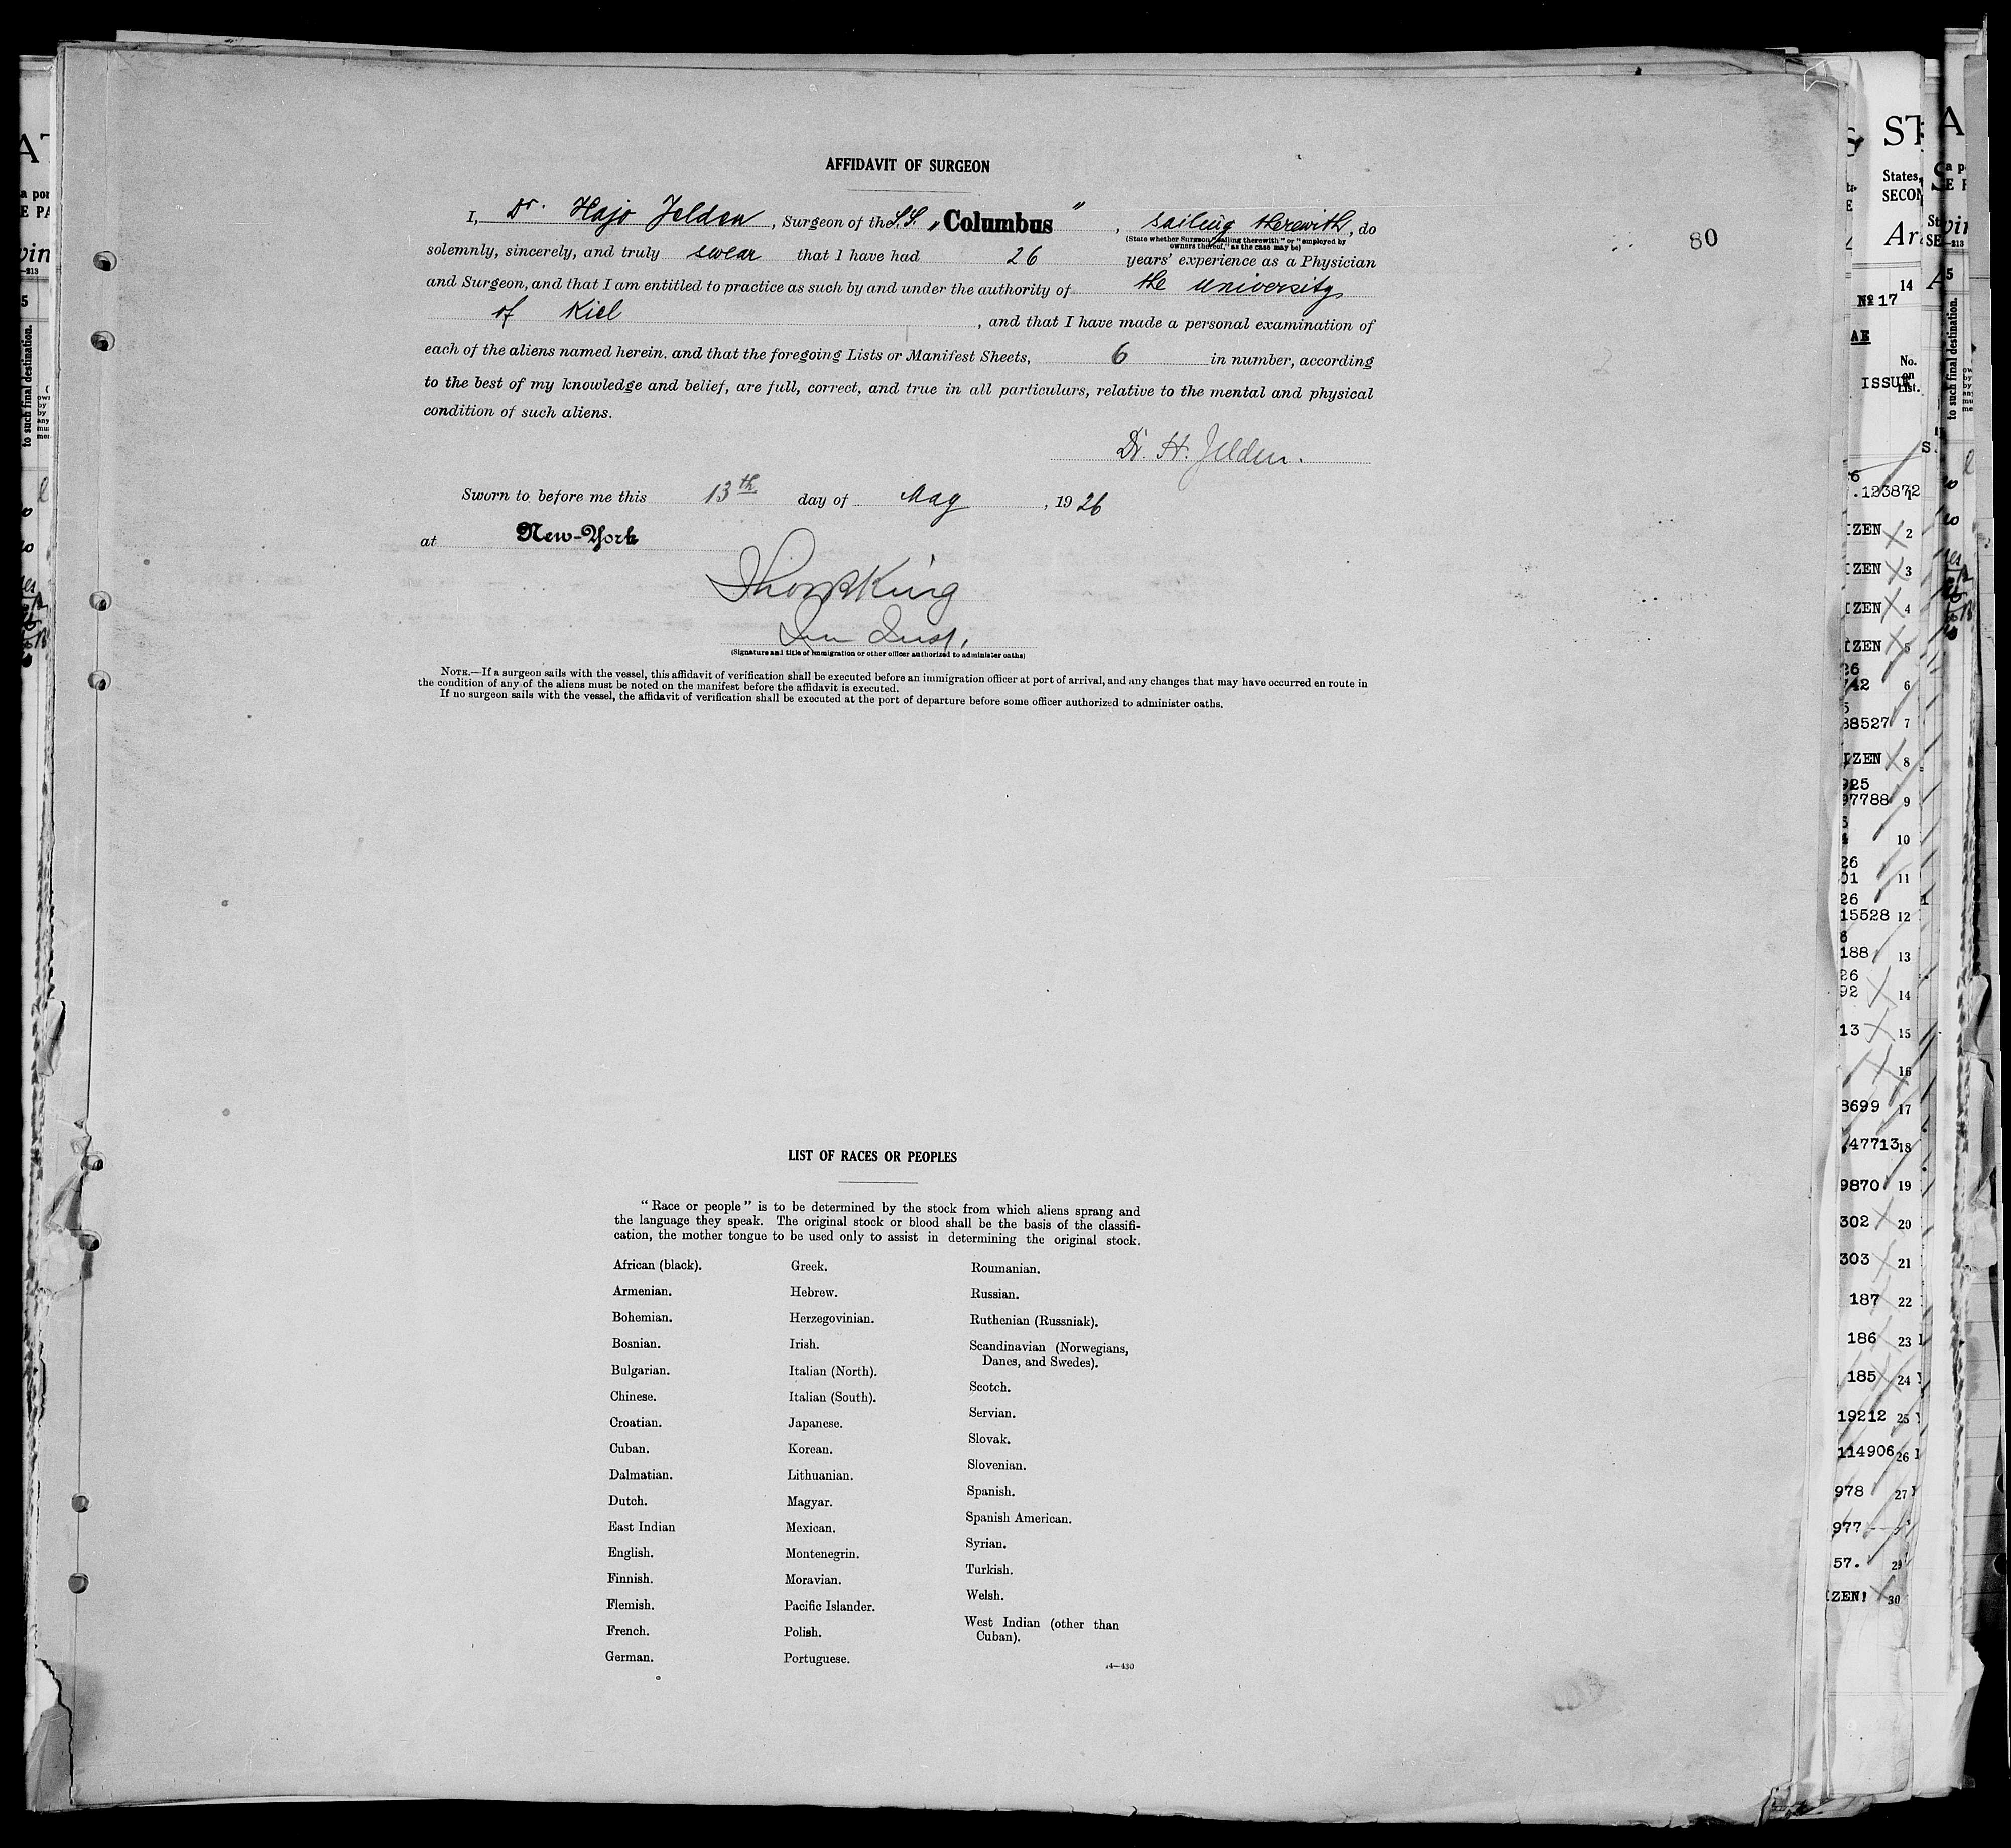 AFFIDAVIT OF SURGEON
80
I, Dr. Hajo Jelden, Surgeon of the S.S. „Columbus", sailing therewith, do
(State whether Surgeon "sailing therewith" or "employed by
owners thereof," as the case may be)
solemnly, sincerely, and truly swear that I have had 26 years' experience as a Physician
and Surgeon, and that I am entitled to practice as such by and under the authority of the university
of Kiel, and that I have made a personal examination of
each of the aliens named herein. and that the foregoing Lists or Manifest Sheets, 6 in number, according
to the best of my knowledge and belief, are full, correct, and true in all particulars, relative to the mental and physical
condition of such aliens.
Dr. H. Jelden.
Sworn to before me this 13th day of May, 1926
at New-York
King
Imm Insp.
(Signature and title of immigration or other officer authorized to administer oaths)
NOTE.—If a surgeon sails with the vessel, this affidavit of verification shall be executed before an immigration officer at port of arrival, and any changes that may have occurred en route in
the condition of any of the aliens must be noted on the manifest before the affidavit is executed.
If no surgeon sails with the vessel, the affidavit of verification shall be executed at the port of departure before some officer authorized to administer oaths.
LIST OF RACES OR PEOPLES
"Race or people" is to be determined by the stock from which aliens sprang and
the language they speak. The original stock or blood shall be the basis of the classifi-
cation, the mother tongue to be used only to assist in determining the original stock.
African (black).
Armenian.
Bohemian.
Bosnian.
Bulgarian.
Chinese.
Croatian.
Cuban.
Dalmatian.
Dutch.
East Indian
English.
Finnish.
Flemish.
French.
German.
Greek.
Hebrew.
Herzegovinian.
Irish.
Italian (North).
Italian (South).
Japanese.
Korean.
Lithuanian.
Magyar.
Mexican.
Montenegrin.
Moravian.
Pacific Islander.
Polish.
Portuguese.
Roumanian.
Russian.
Ruthenian (Russniak).
Scandinavian (Norwegians,
Danes, and Swedes).
Scotch.
Servian.
Slovak.
Slovenian.
Spanish.
Spanish American.
Syrian.
Turkish.
Welsh.
West Indian (other than
Cuban).
14—430
States,
14
№ 17
No.
on
List.
ISSUE
123872
IZEN 2
IZEN 3
IZEN 4
IZEN 5
742 6
38527 7
IZEN 8
925
97788 9
10
26
01 11
26
15528 12
188 13
26
92 14
13 15
16
8699 17
47713 18
9870 19
302 20
303 21
187 22
186 23
185 24
19212 25
114906 26
978 27
977
57. 29
IZEN! 30
to such final destination.
to such final destination.